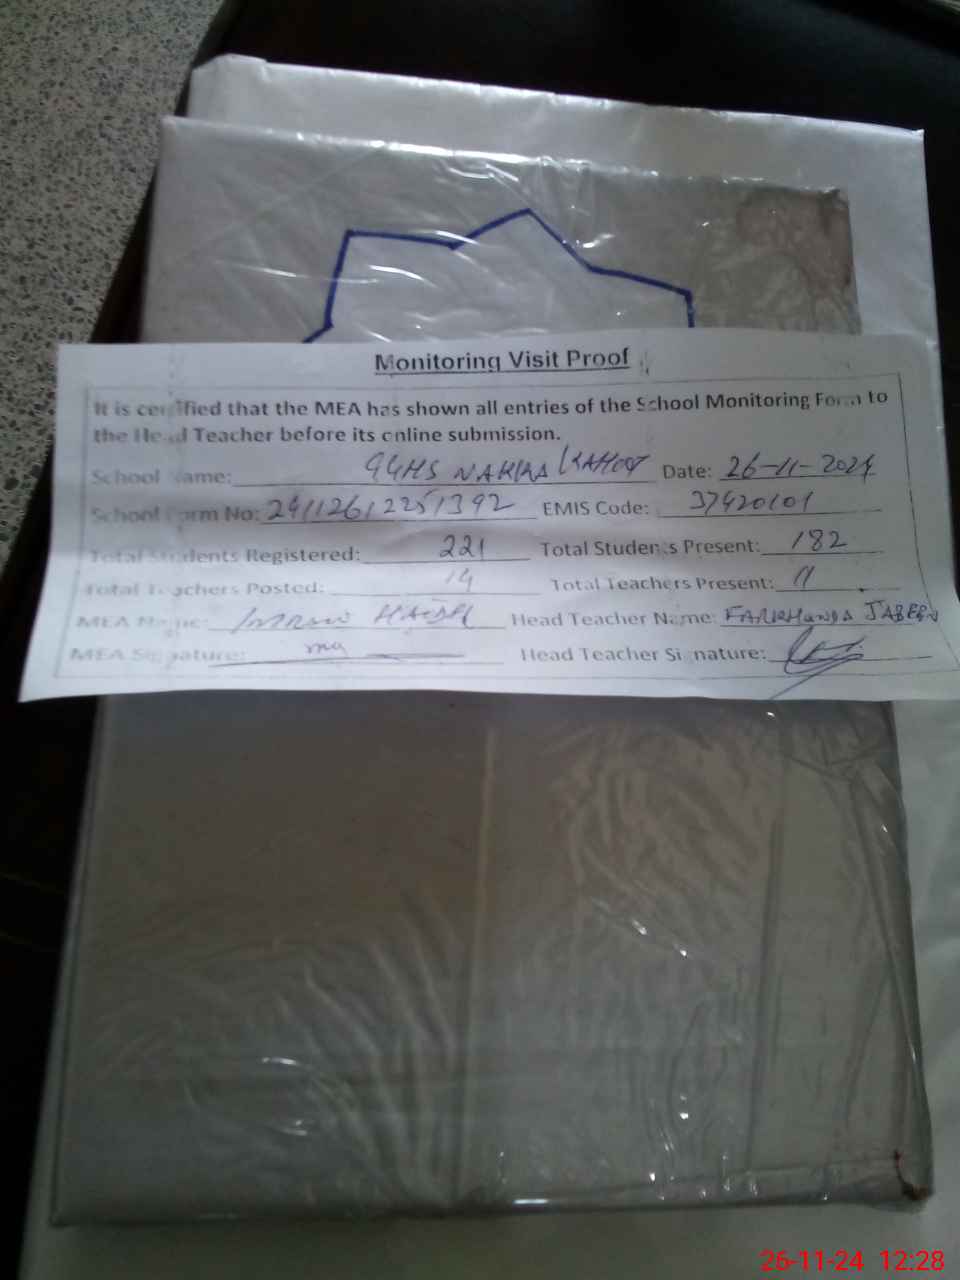 Monitoring Visit Proof
It is certified that the MEA has shown all entries of the School Monitoring Form to
the Head Teacher before its online submission.
School Name: GGHS NARRA KAHOOT Date: 26-11-2024
School Form No: 24112612251392 EMIS Code: 37420101
Total Students Registered: 221 Total Students Present: 182
Total Teachers Posted: 14 Total Teachers Present: 11
MEA Name: Imran HAIDER Head Teacher Name: FARKHANDA JABEEN
MEA Signature: Head Teacher Signature:
26-11-24 12:28